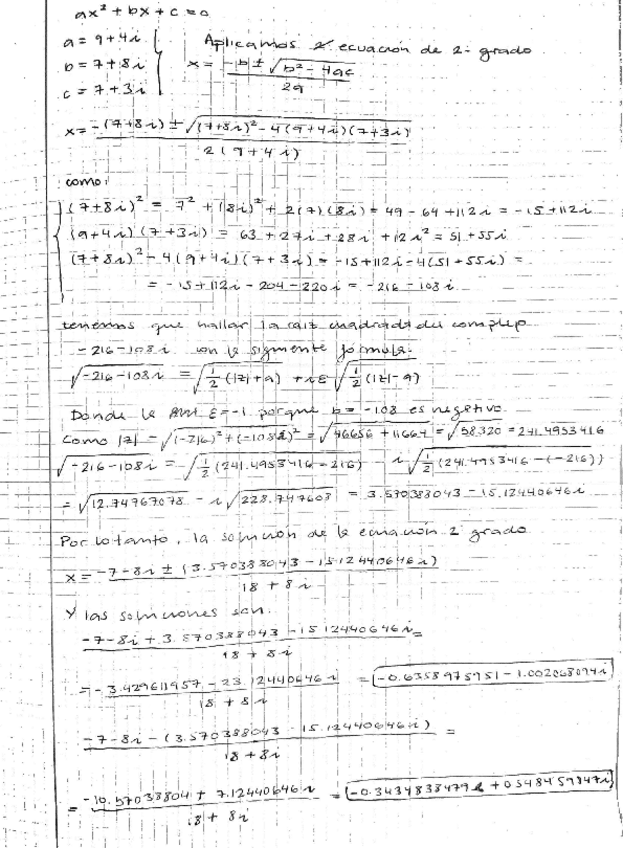 ax² + bx + c = 0
a = 9+4i
b = 7+8i
c = 7+3i
Aplicamos 2 ecuación de 2º grado
x = (-b ± √(b² - 4ac)) / 2a
x = (-(7+8i) ± √((7+8i)² - 4(9+4i)(7+3i))) / 2(9+4i)
como:
(7+8i)² = 7² + (8i)² + 2(7)(8i) = 49 - 64 + 112i = -15 + 112i
(9+4i)(7+3i) = 63 + 27i + 28i + 12i² = 51 + 55i
(7+8i)² - 4(9+4i)(7+3i) = -15 + 112i - 4(51 + 55i) =
= -15 + 112i - 204 - 220i = -216 - 108i
tenemos que hallar la raiz cuadrada del complejo
-216 - 108i con la siguiente formula:
√(-216 - 108i) = √(½(|z| + a)) + iε√(½(|z| - a))
Donde la ε = -1 porque b = -108 es negativo
Como |z| = √((-216)² + (-108)²) = √(46656 + 11664) = √58320 = 241.4953416
√(-216 - 108i) = √(½(241.4953416 - 216)) - i√(½(241.4953416 - (-216)))
= √12.74767078 - i√228.747603 = 3.570388043 - 15.12440646i
Por lo tanto, la solución de la ecuación 2 grado
x = (-7 - 8i ± (3.570388043 - 15.12440646i)) / (18 + 8i)
Y las soluciones son:
(-7 - 8i + 3.570388043 - 15.12440646i) / (18 + 8i) =
= (-3.429611957 - 23.12440646i) / (18 + 8i) = -0.6358975951 - 1.002068094i
(-7 - 8i - (3.570388043 - 15.12440646i)) / (18 + 8i) =
= (-10.57038804 + 7.12440646i) / (18 + 8i) = -0.3434838479 + 0.548459847i